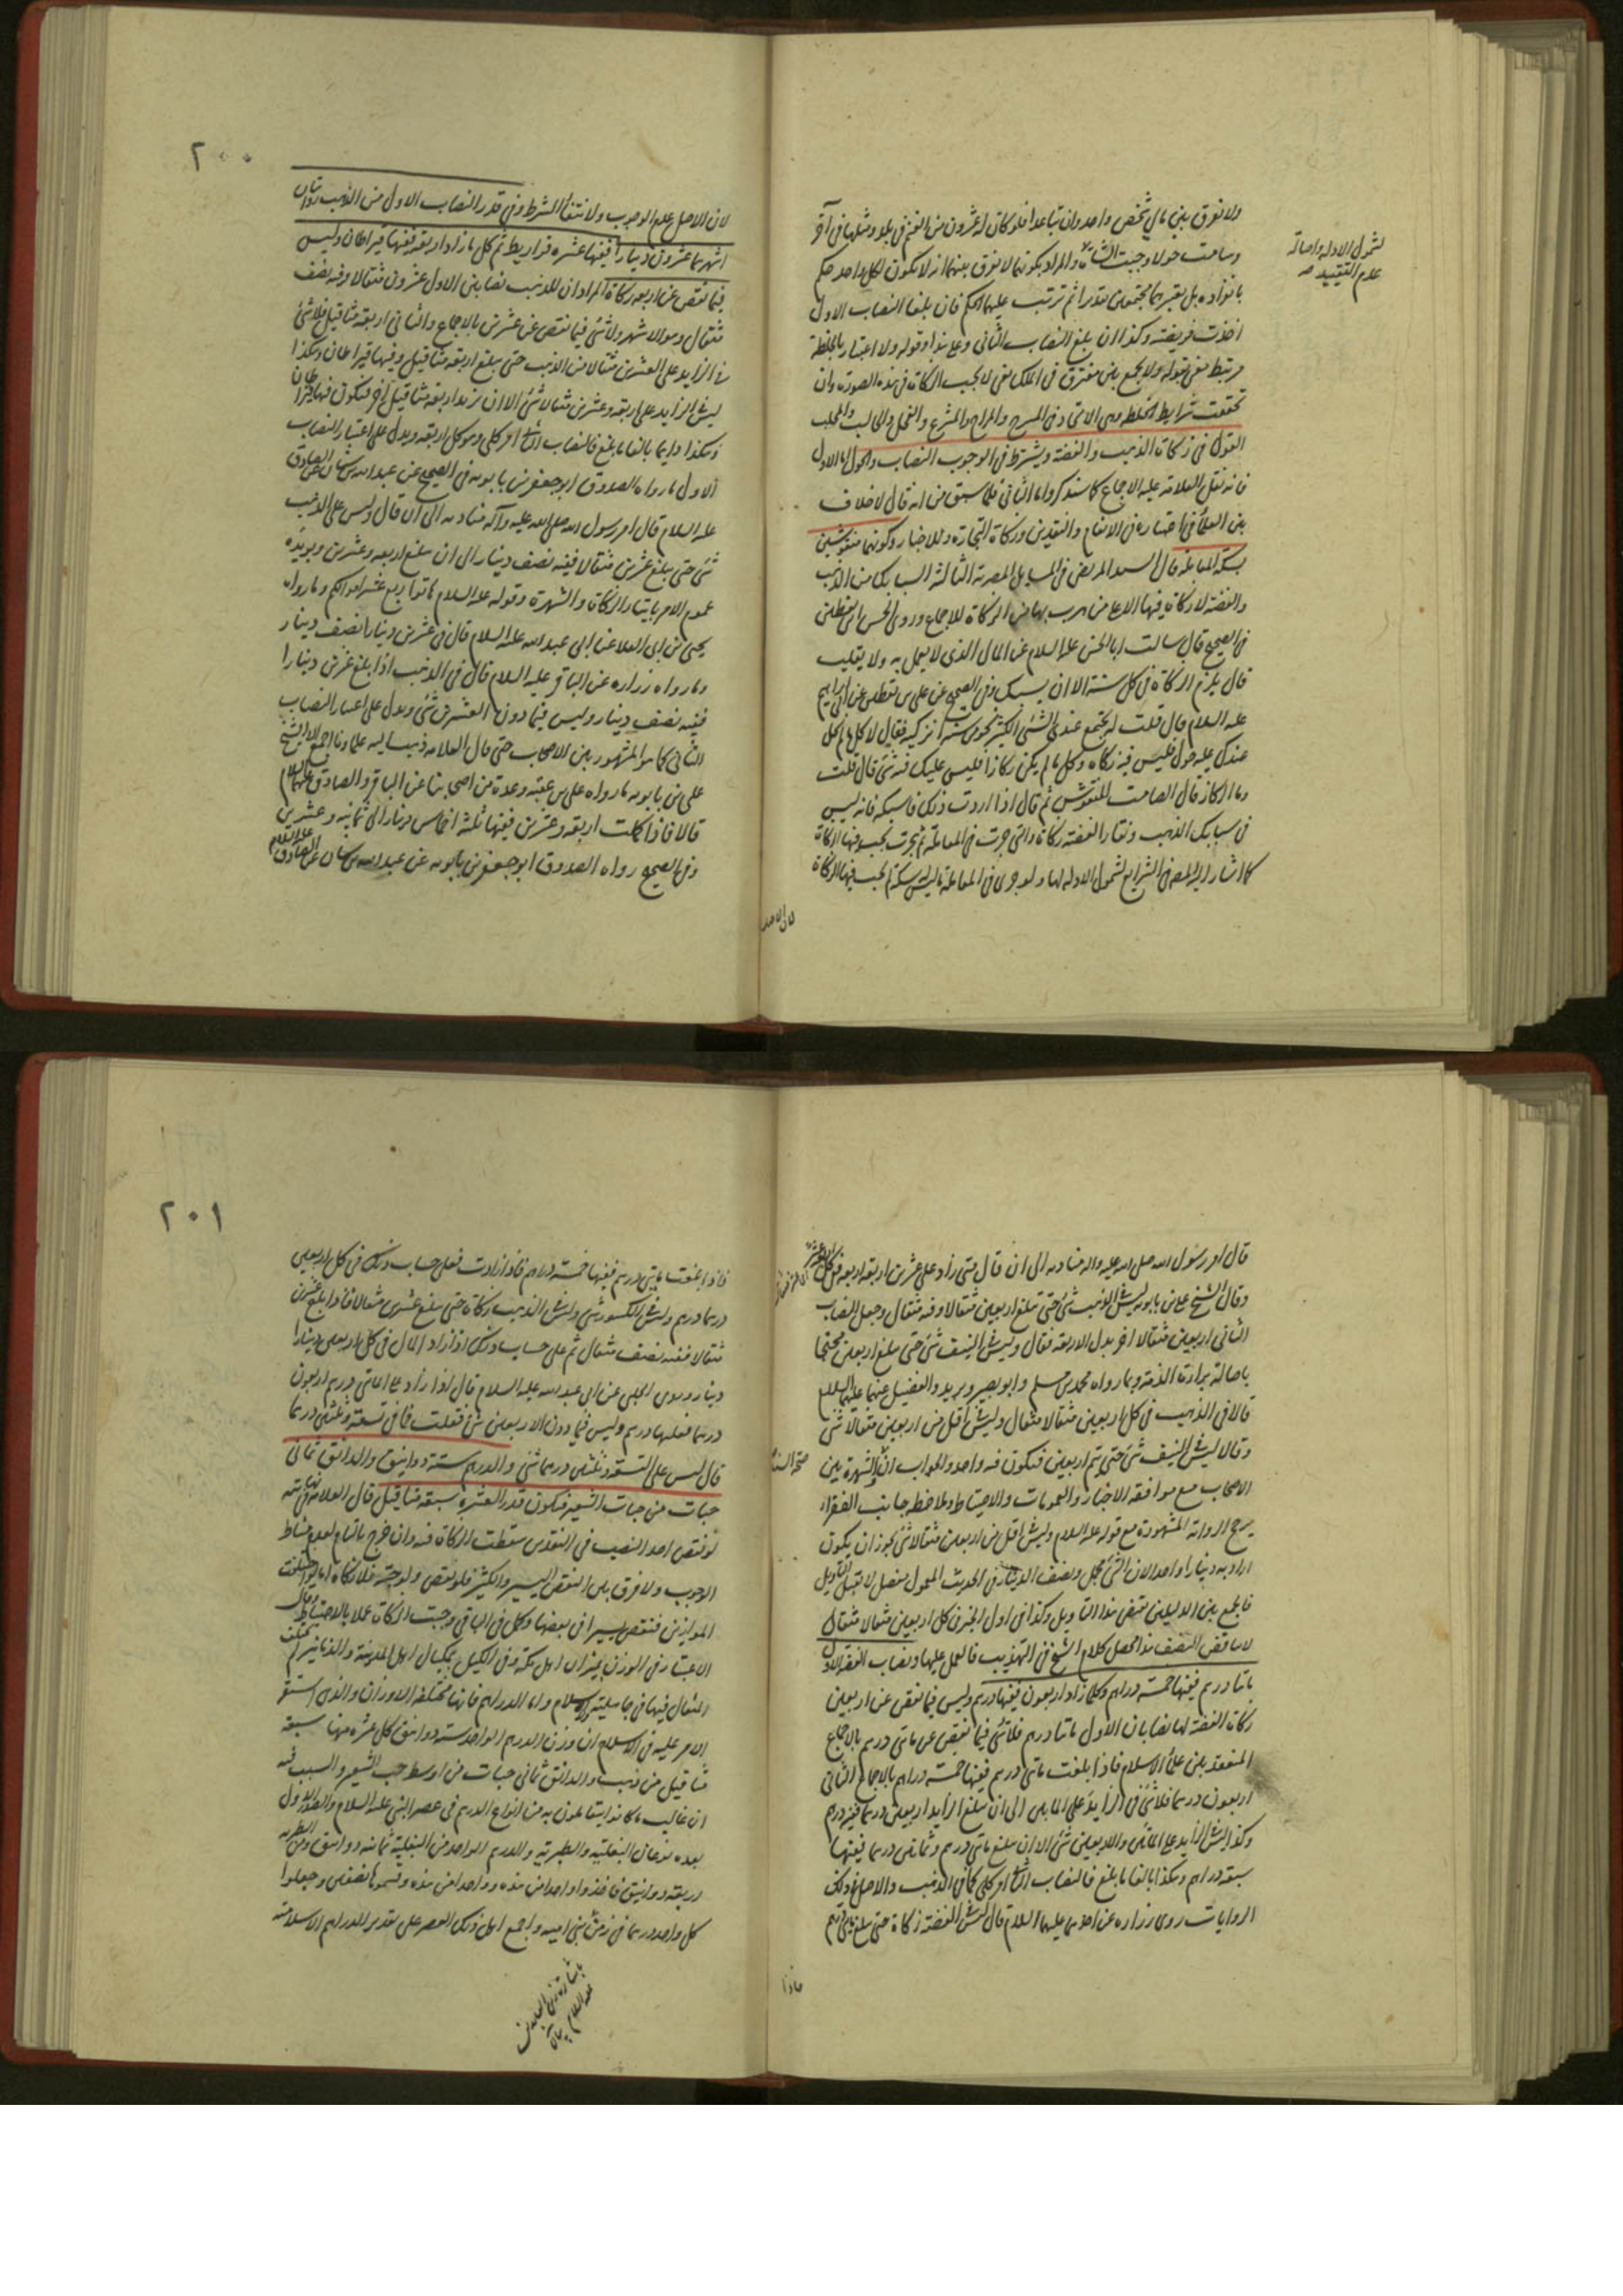 ولا نفرق بين مالي شخص واحد وان تباعدا فلو كان له عشرون من الغنم في بلد ومثلها في آخر
وسامت حولا وجبت الشاة والمراد بكونهما لا نفرق بينهما انه لا يكون لكل واحد حكم
بانفراده بل يعتبر مجتمعين مقدرا ثم ترتب عليهما الحكم فان بلغا النصاب الاول
اخذت فريضته وكذا ان بلغ النصاب الثاني وعلى هذا وقوله ولا اعتبار بالخلطة
مرتبط بقوله ولا يجمع بين مفترق في الملك يعني لا يجب الزكاة في هذه الصورة وان
تحققت شرايط الخلطة وهي الاتحاد في المسرح والمراح والمشرع والفحل والحالب والمحلب
القول في زكاة الذهب والفضة ويشترط في الوجوب النصاب والحول اما الاول
فانه نقل العلامة عليه الاجماع كما سنذكر واما الثاني فلما سبق من انه قال لا خلاف
بين العلماء في اعتباره في الانعام والنقدين وزكاة التجارة وللاخبار وكونهما منقوشين
بسكة المعاملة قال السيد المرتضى في المسايل المصرية الثالثة السبايك من الذهب
والفضة لا زكاة فيها الا على من هرب بها من الزكاة للاجماع وروى الحسن بن يقطين
في الصحيح قال سالت ابا الحسن عليه السلام عن المال الذي لا يعمل به ولا يقلب
قال يلزم الزكاة في كل سنة الا ان يسبك وفي الصحيح عن علي بن يقطين عن ابي ابراهيم
عليه السلام قال قلت له يجتمع عندي الشئ الكثير نحو من سنة انزكيه فقال لا كل ما لم يحل
عندك عليه حول فليس فيه زكاة وكل ما لم يكن ركازا فليس عليك فيه شئ قال قلت
وما الركاز قال الصامت المنقوش ثم قال اذا اردت ذلك فاسبكه فانه ليس
في سبايك الذهب ونقار الفضة زكاة والتي جرت في المعاملة ثم هجرت يجب فيها الزكاة
كما اشار اليه المصنف في الشرايع لشمول الادلة لها ولو جرى في المعاملة ما ليس له سكة لم يجب فيها الزكاة
لشمول الادلة واصالة
عدم التقييد صح
لان الاصل
٢٠٠
لان الاصل عدم الوجوب ولانتفاء الشرط وفي قدر النصاب الاول من الذهب روايتان
اشهرهما عشرون دينارا ففيها عشرة قراريط ثم كل ما زاد اربعة ففيها قيراطان وليس
فيما نقص عن اربعة زكاة المراد ان للذهب نصابين الاول عشرون مثقالا وفيه نصف
مثقال وهو الاشهر ولا شئ فيما نقص عن عشرين بالاجماع والثاني اربعة مثاقيل فلا شئ
في الزايد على العشرين مثقالا من الذهب حتى يبلغ اربعة مثاقيل وفيها قيراطان وهكذا
ليس في الزايد على اربعة وعشرين مثقالا شئ الا ان يزيد اربعة مثاقيل اخر فيكون فيها قيراطان
وهكذا دايما بالغا ما بلغ فالنصاب الثاني امر كلي وهو كل اربعة ويدل على اعتبار النصاب
الاول ما رواه الصدوق ابو جعفر بن بابويه في الصحيح عن عبد الله بن سنان عن الصادق
عليه السلام قال امر رسول الله صلى الله عليه وآله مناديه الى ان قال وليس على الذهب
شئ حتى يبلغ عشرين مثقالا ففيه نصف دينار الى ان يبلغ اربعة وعشرين ويؤيده
عموم الامر بايتاء الزكاة والشهرة وقوله عليه السلام هاتوا ربع عشر اموالكم وما رواه
يحيى بن ابي العلا عن ابي عبد الله عليه السلام قال في عشرين دينارا نصف دينار
وما رواه زرارة عن الباقر عليه السلام قال في الذهب اذا بلغ عشرين دينارا
ففيه نصف دينار وليس فيما دون العشرين شئ ويدل على اعتبار النصاب
الثاني كما هو المشهور بين الاصحاب حتى قال العلامة ذهب اليه علماؤنا اجمع الا الشيخ
علي بن بابويه ما رواه علي بن عقبة وعدة من اصحابنا عن الباقر والصادق عليهما السلام
قالا فاذا كملت اربعة وعشرين ففيها ثلثة اخماس دينار الى ثمانية وعشرين
وفي الصحيح رواه الصدوق ابو جعفر بن بابويه عن عبد الله بن سنان عن الصادق عليه السلام
قال امر رسول الله صلى الله عليه واله مناديه الى ان قال متى زاد على عشرين اربعة اربعة ففي كل
وقال الشيخ علي بن بابويه ليس في الذهب شئ حتى تبلغ اربعين مثقالا وفيه مثقال وجعل النصاب
الثاني اربعين مثقالا اخر بدل الاربعة فقال وليس في النيف شئ حتى يبلغ اربعين محتجا
باصالة براءة الذمة وبما رواه محمد بن مسلم وابو بصير وبريد والفضيل عنهما عليهما السلام
قالا في الذهب في كل اربعين مثقالا مثقال وليس في اقل من اربعين مثقالا شئ
وقالا ليس في النيف شئ حتى يتم اربعين فيكون فيه واحد والجواب ان الشهرة بين
الاصحاب مع موافقة الاخبار والعمومات والاحتياط وملاحظة جانب الفقراء
يرجح الرواية المشهورة مع قوله عليه السلام وليس في اقل من اربعين مثقالا شئ يجوز ان يكون
اراد به دينارا واحدا لان الشئ مجمل ونصف الدينار في الحديث المعمول مفصل لا تقبل التاويل
فالجمع بين الدليلين يقتضي هذا التاويل وكذا في اول الخبر في كل اربعين مثقالا مثقال
لا يناقض النصف هذا محصل كلام الشيخ في التهذيب فالعمل عليها ونصاب الفضة الاول
مائتا درهم ففيها خمسة دراهم وكلما زاد اربعون ففيها درهم وليس فيما نقص عن اربعين
زكاة الفضة لها نصابان الاول مائتا درهم فلا شئ فيما نقص عن مائتي درهم بالاجماع
المنعقد بين علماء الاسلام فاذا بلغت مائتي درهم ففيها خمسة دراهم بالاجماع الثاني
اربعون درهما فلا شئ في الزايد على المايتين الى ان يبلغ الزايد اربعين درهما ففيه درهم
وكذا ليس في الزايد على المائتين والاربعين شئ الا ان يبلغ مائتي درهم وثمانين درهما ففيها
سبعة دراهم وهكذا بالغا ما بلغ فالنصاب الثاني امر كلي كما في الذهب والاصل في ذلك
الروايات روى زرارة عن احدهما عليهما السلام قال ليس في الفضة زكاة حتى يبلغ مائتي درهم
فاذا
٢٠١
فاذا بلغت مايتي درهم ففيها خمسة دراهم فاذا زادت فعلى حساب ذلك في كل اربعين
درهما درهم وليس في الكسور شئ وليس في الذهب زكاة حتى يبلغ عشرين مثقالا فاذا بلغ عشرين
مثقالا ففيه نصف مثقال ثم على حساب ذلك اذا زاد المال في كل اربعين دينارا
دينار وروى الحلبي عن ابي عبد الله عليه السلام قال اذا زاد على المائتي درهم اربعون
درهما ففيها درهم وليس فيما دون الاربعين شئ فقلت فما في تسعة وثلثين درهما
قال ليس على التسعة وثلثين درهما شئ والدرهم ستة دوانيق والدانق ثماني
حبات من حبات الشعير فيكون قدر العشرة سبعة مثاقيل قال العلامة
لو نقص احد النصب في النقدين سقطت الزكاة فيه وان خرج بالتمام لعدم مناط
الوجوب ولا فرق بين النقص اليسير والكثير فلو نقص ولو حبة فلا زكاة اما لو اختلفت
الموازين فنقص يسيرا في بعضها وكمل في الباقي وجبت الزكاة عملا بالاحتياط وقال
الاعتبار في الوزن بميزان اهل مكة وفي الكيل بمكيال اهل المدينة والدنانير لم يختلف
المثقال فيها في جاهلية ولا اسلام واما الدراهم فانها مختلفة الاوزان والذي استقر
الامر عليه في الاسلام ان وزن الدرهم الواحد ستة دوانيق كل عشرة منها سبعة
مثاقيل من ذهب والدانق ثماني حبات من اوسط حب الشعير والسبب فيه
ان غالب ما كانوا يتعاملون به من انواع الدرهم في عصر النبي عليه السلام والصدر الاول
بعده نوعان البغلية والطبرية والدرهم الواحد من البغلية ثمانية دوانيق ومن الطبرية
اربعة دوانيق فاخذوا واحدا من هذه وواحدا من هذه وقسموها نصفين وجعلوا
كل واحد درهما في زمن بني امية واجمع اهل ذلك العصر على تقدير الدراهم الاسلامية